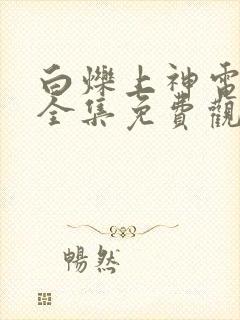 白爍上神電
全集免費觀
暢然